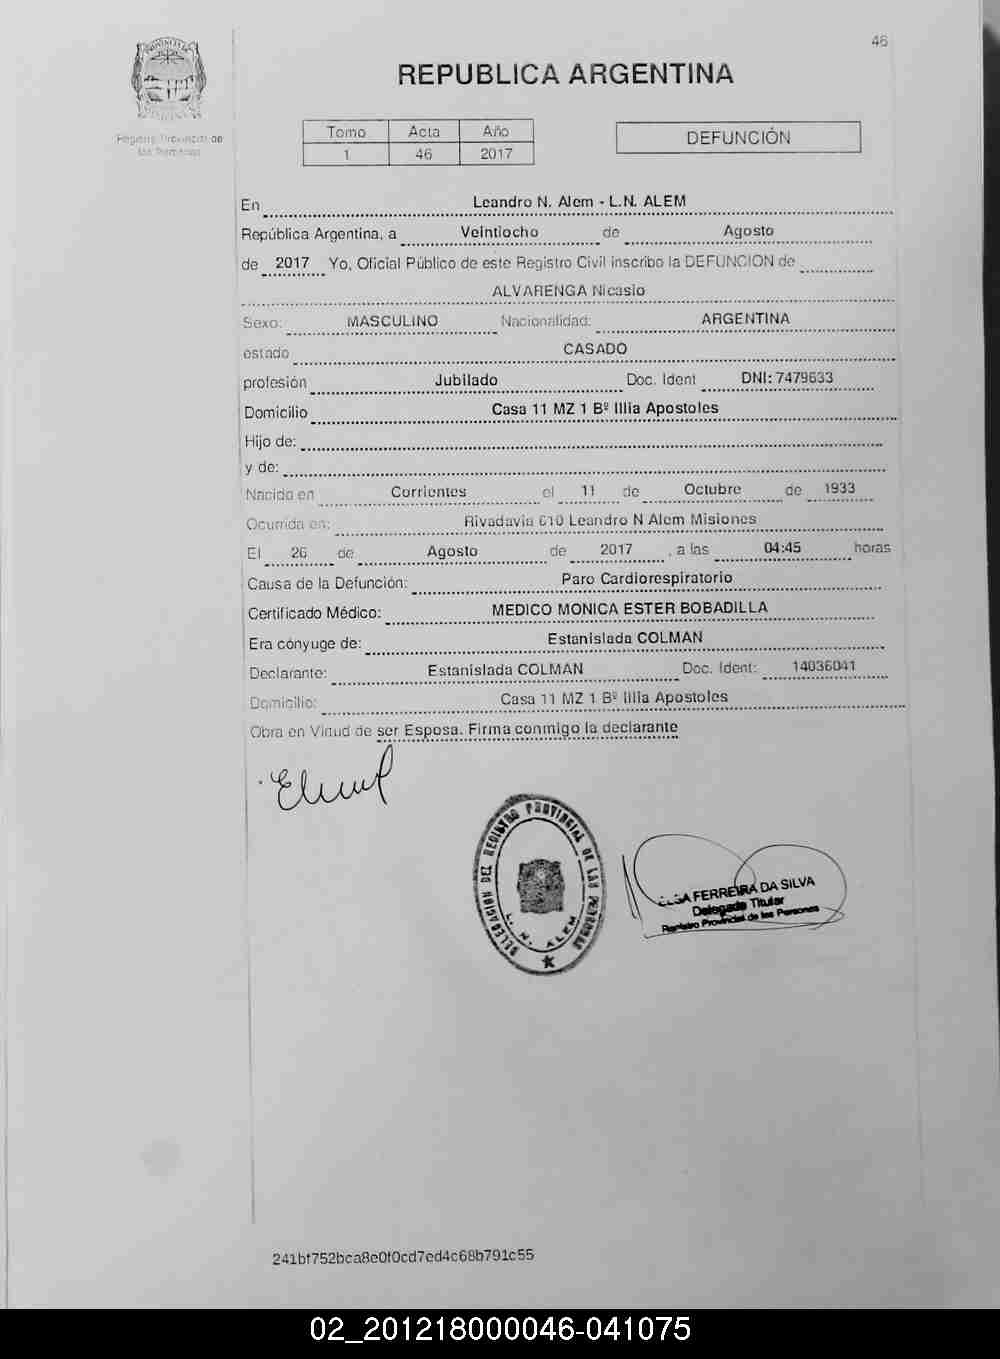 46
REPUBLICA ARGENTINA
Registro Provincial de
las Personas
Tomo Acta Año
1 46 2017
DEFUNCIÓN
En Leandro N. Alem - L.N. ALEM
República Argentina, a Veintiocho de Agosto
de 2017 Yo, Oficial Público de este Registro Civil inscribo la DEFUNCION de
ALVARENGA Nicasio
Sexo: MASCULINO Nacionalidad: ARGENTINA
estado CASADO
profesión Jubilado Doc. Ident DNI: 7479633
Domicilio Casa 11 MZ 1 Bº Illia Apostoles
Hijo de:
y de:
Nacido en Corrientes el 11 de Octubre de 1933
Ocurrida en: Rivadavia 610 Leandro N Alem Misiones
El 26 de Agosto de 2017, a las 04:45 horas
Causa de la Defunción: Paro Cardiorespiratorio
Certificado Médico: MEDICO MONICA ESTER BOBADILLA
Era cónyuge de: Estanislada COLMAN
Declarante: Estanislada COLMAN Doc. Ident: 14036041
Domicilio: Casa 11 MZ 1 Bº Illia Apostoles
Obra en Virtud de ser Esposa. Firma conmigo la declarante
DELEGACION DEL REGISTRO PROVINCIAL DE LAS PERSONAS
L. N. ALEM
FERREIRA DA SILVA
Delegada Titular
Registro Provincial de las Personas
241bf752bca8e0f0cd7ed4c68b791c55
02_201218000046-041075